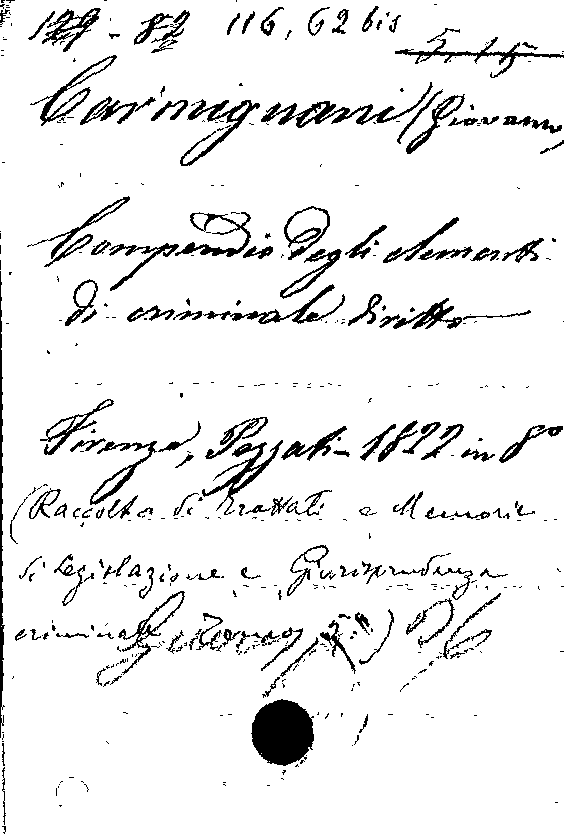 116, 62 bis
5.15
Carmignani (Giovanni)
Compendio degli elementi
di criminale diritto
Firenze, Pezzati - 1822 in 8°
(Raccolta di Trattati e Memorie
di Legislazione e Giurisprudenza
criminale